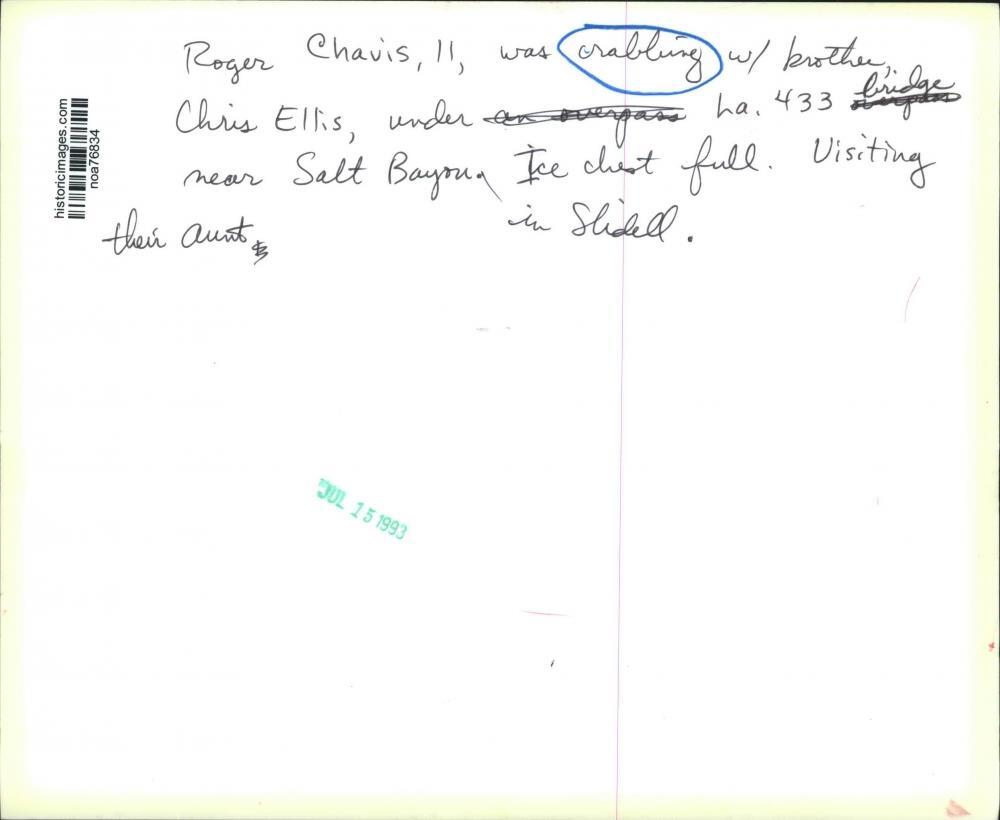 Roger Chavis, 11, was crabbing w/ brother,
Chris Ellis, under an overpass La. 433 overpass bridge
near Salt Bayou. Ice chest full. Visiting
their aunt
in Slidell.
historicimages.com
noa76834
JUL 15 1993